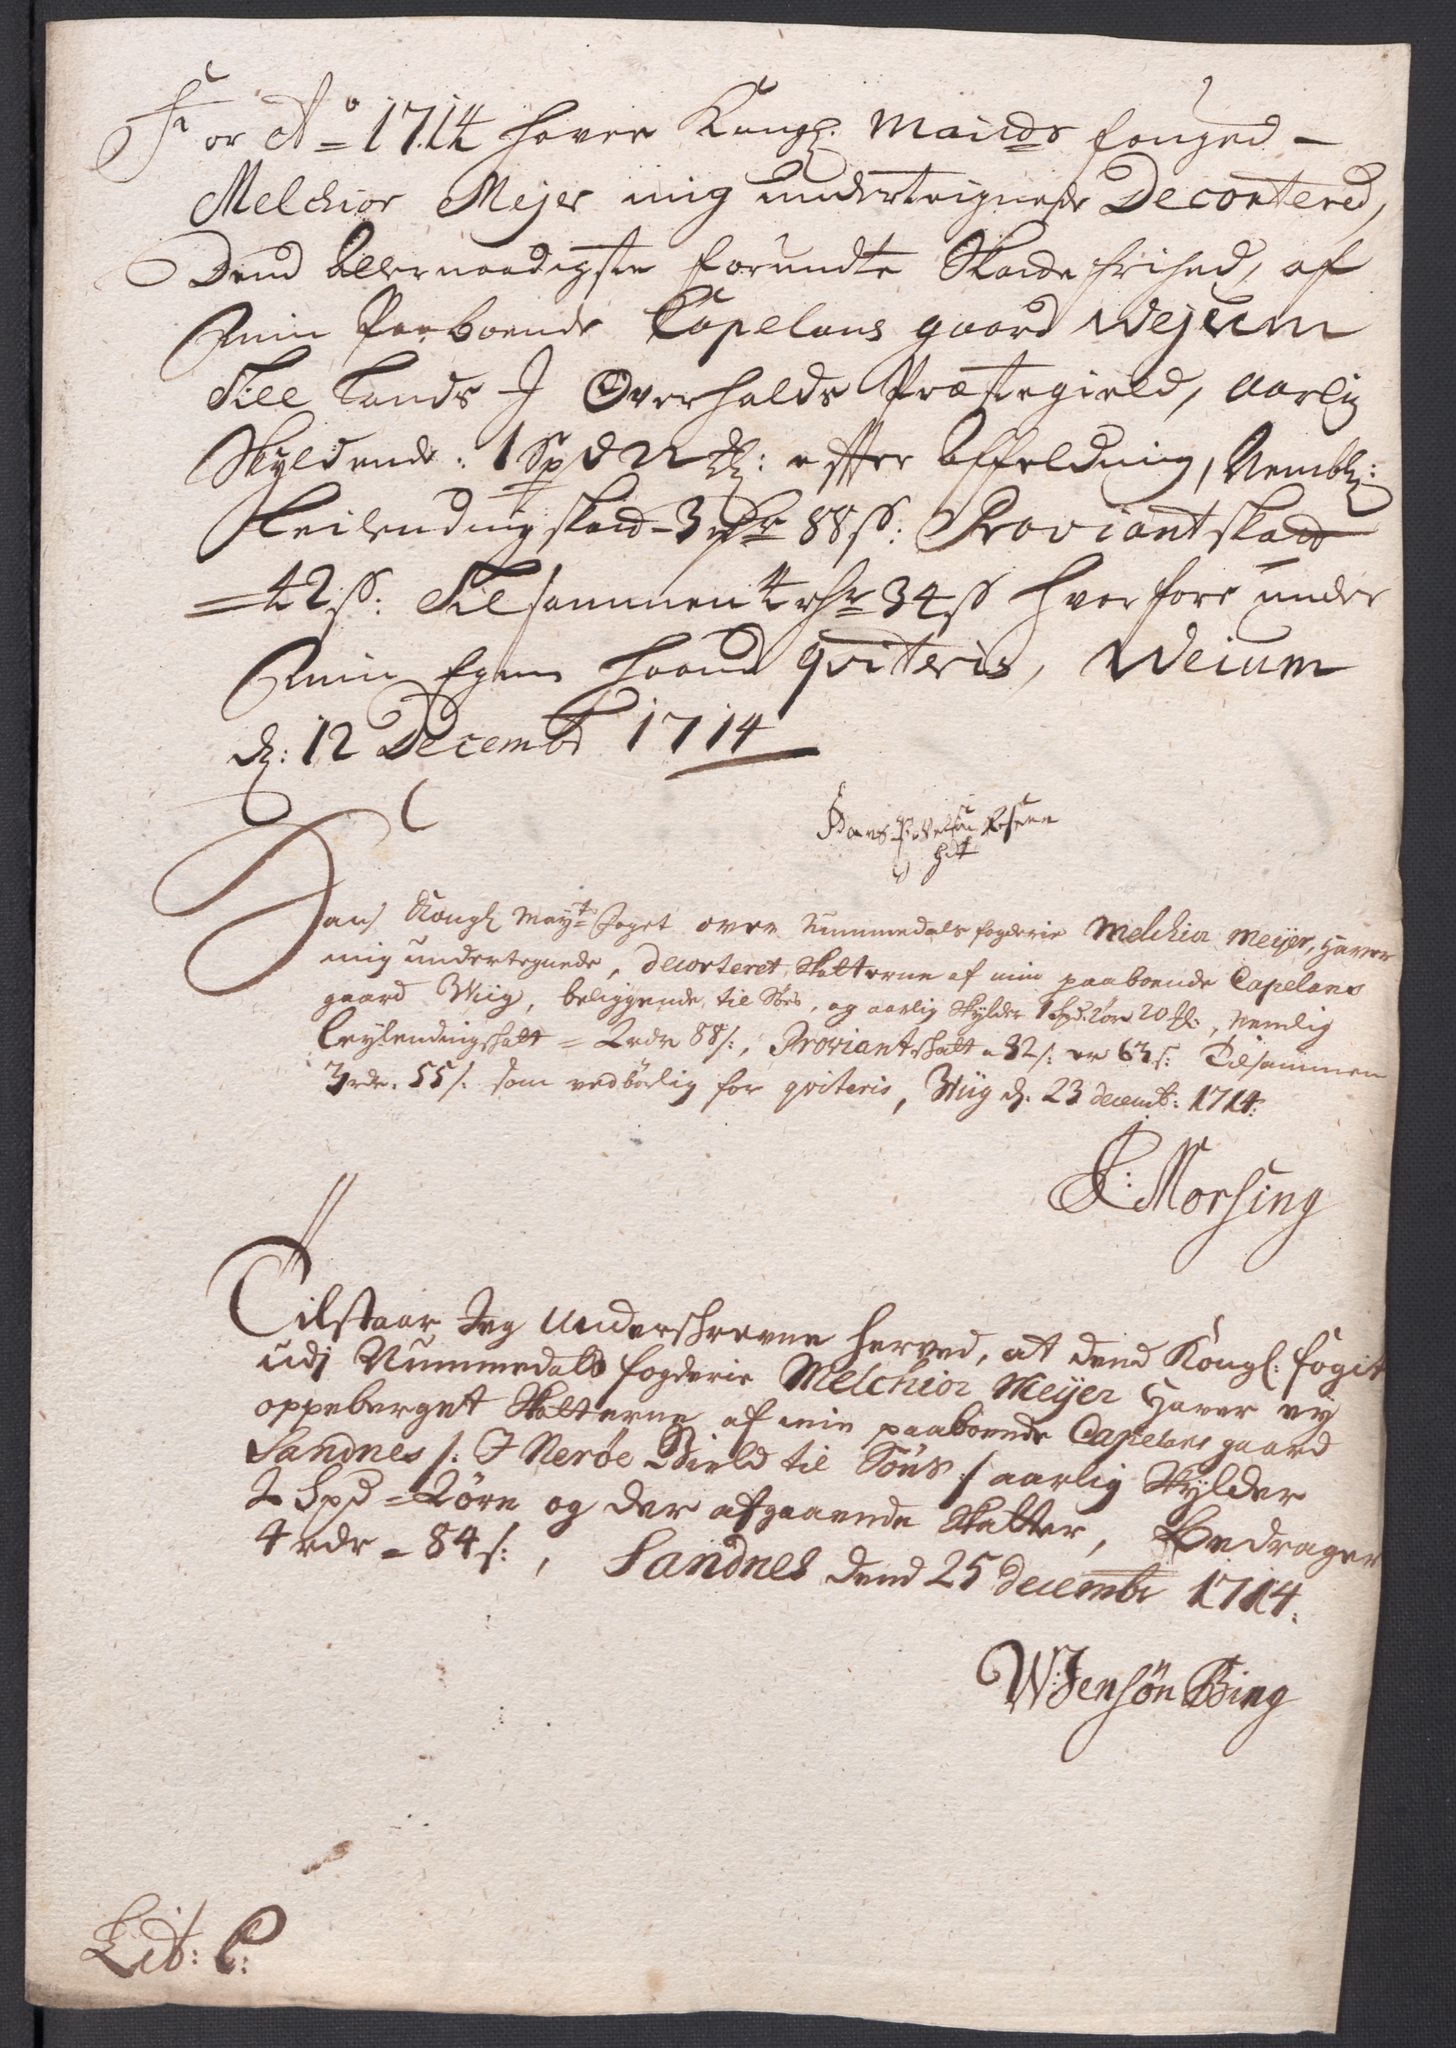 For Ao 1714 haver Kongl. Maiests fouged
Melchior Mejer mig underteignede Decortered,
Dend allernaadigste forundte Skatte frihed, af
Min Paaboende Capelans gaard Wejum
Till Lands J Overhalds Præstegield, Aarlig
Skyldende: 1 Spd 2 efter affeldning, Nembl:
Leilendings skat - 3 rdr 88 ss: Proviant skatt
= 42 ss: Tilsammen 4 rdr 34 ss hvorfore under
Min Egen haand qviteris, Weium
d: 12 Decembr 1714
Hans
Hans Kongl Mayts foget over Nummedals fogderie Melchior Meijer, Haver
mig undertegnede, decorteret Skatterne af min paaboende Capelans
gaard Wiig, beliggende til Søes, og aarlig Skylder 1 Spd: 2 øre 20 , Nemlig
Leylendings skatt = 2 rdr 88 s:, Proviant skatt = 32 s: er 63 s: Tilsammen
3 rdr. 55 s: som vedbørlig for qviteris, Wiig d. 23 decemb: 1714:
Morsing
Tilstaar Jeg Underschrevne herved, at dend Kongl: fogit
udj Nummedals fogderie Melchior Meyer Haver ey
oppeberget Skatterne af min paaboende Capelans gaard
Sandnes /: J Nerøe Gield til Søes :/ aarlig Skylder
2 Spd = 2 øre og der afgaaende Skatter, Bedrager
4 rdr = 84 s:, Sandnes dend 25 decembr 1714.
W: Jensøn Bing
Lit: C: